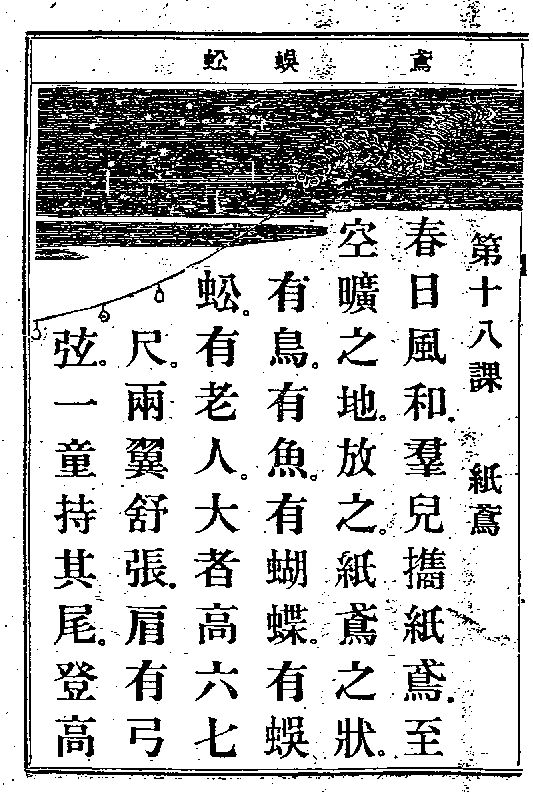 鳶　蜈　蚣
第十八課　紙鳶
春日風和.羣兒攜紙鳶.至
空曠之地。放之。紙鳶之狀。
有鳥。有魚。有蝴蝶。有蜈
蚣。有老人。大者高六七
尺。兩翼舒張.肩有弓
弦。一童持其尾。登高